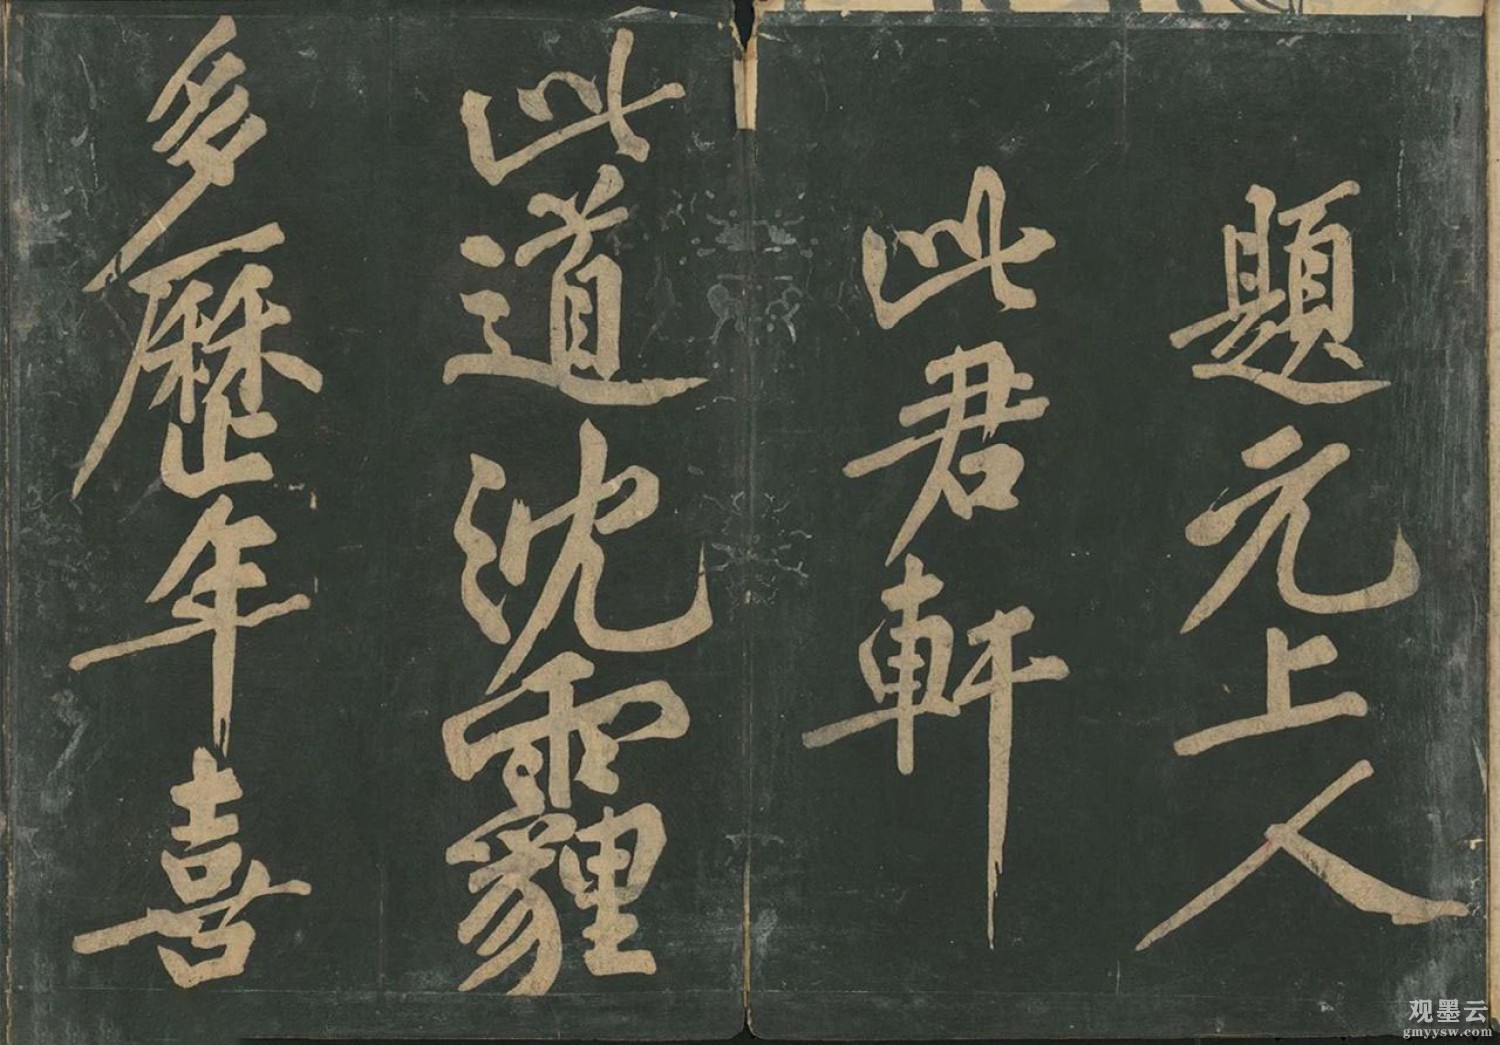 題元上人
此君軒
此道沈霾
多歷年喜
观墨云
gmyysw.com